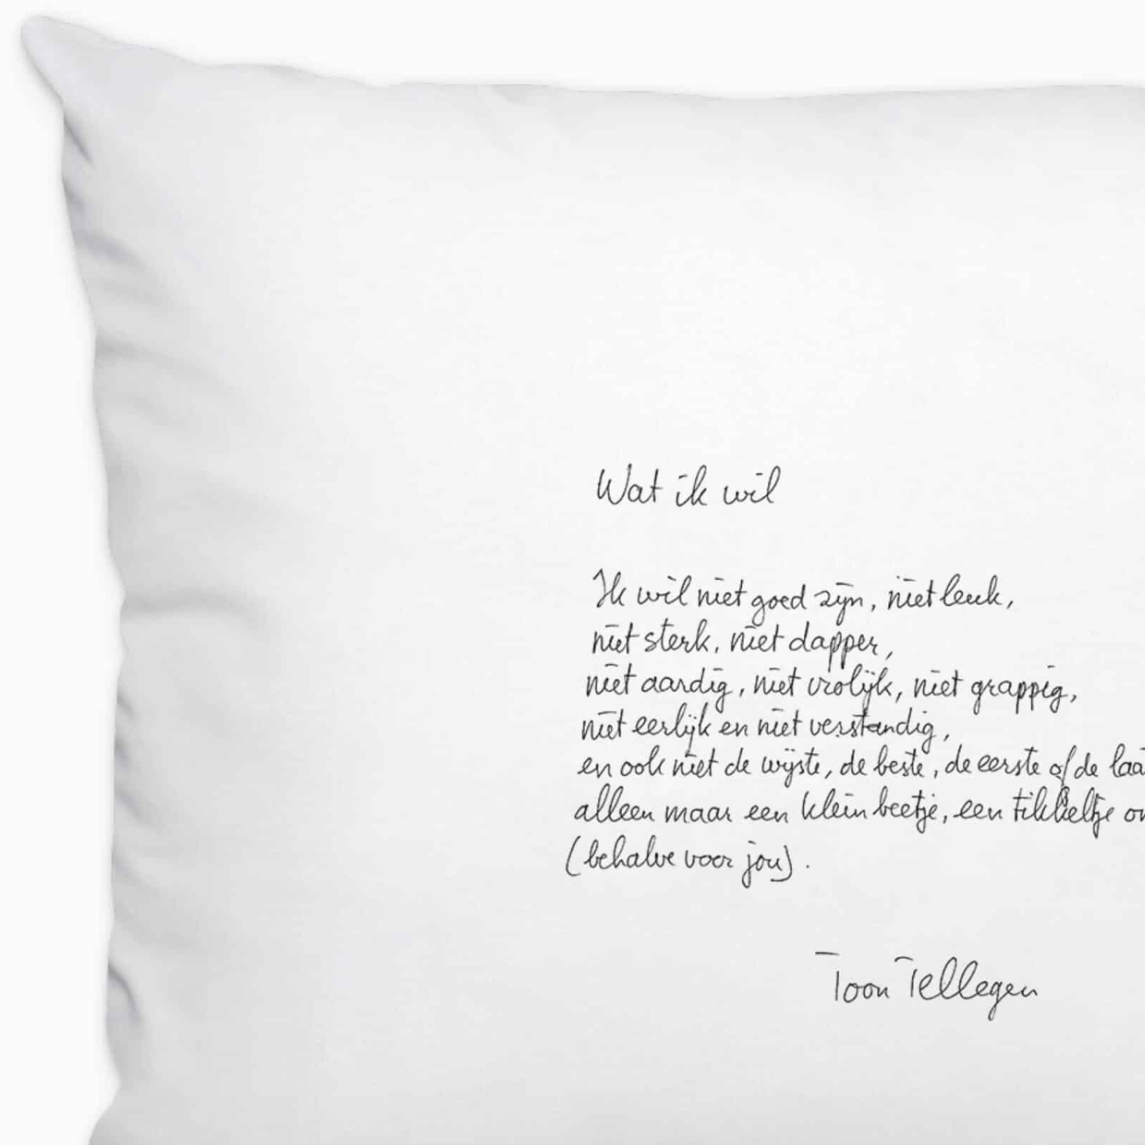 Wat ik wil
Ik wil niet goed zijn, niet leuk,
niet sterk, niet dapper,
niet aardig, niet vrolijk, niet grappig,
niet eerlijk en niet verstandig,
en ook niet de wijste, de beste, de eerste of de
alleen maar een klein beetje, een tikkeltje
(behalve voor jou).
Toon Tellegen